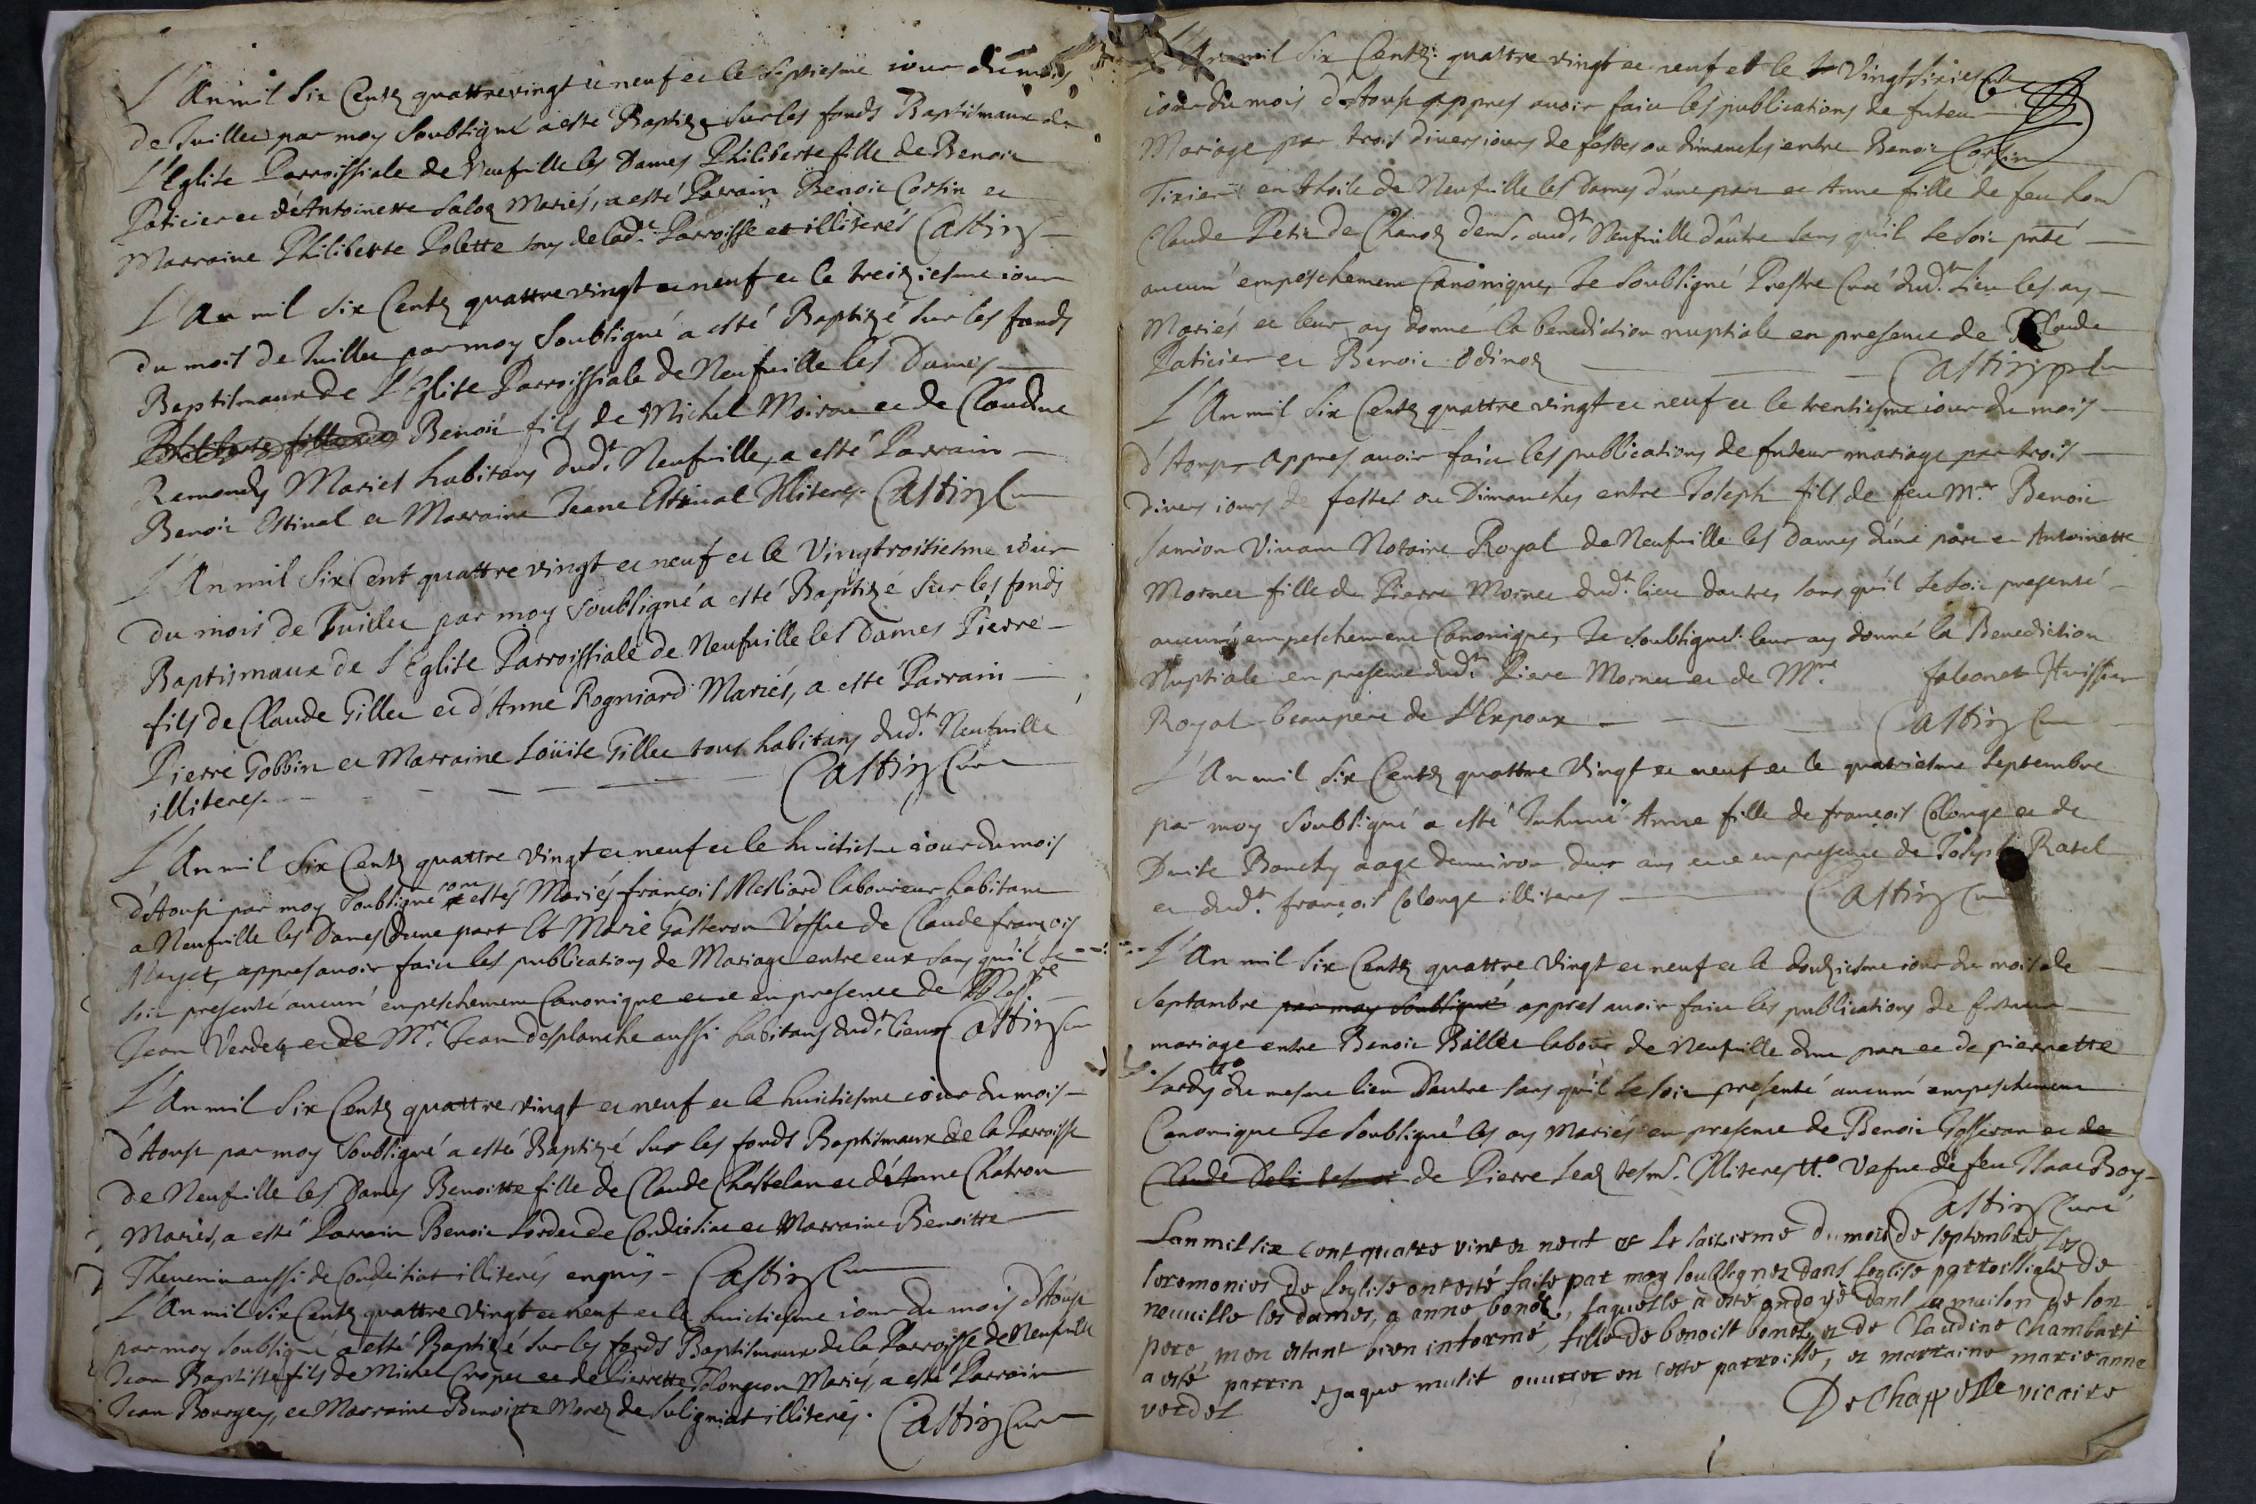 L'An mil six Centz quattre vingt et neuf et le septiesme iour du mois
de Juillet par moy soubsigné a esté Baptizée sur les fonds Baptismaux de
L'Eglise Parroissiale de Neufville les Dames Philiberte fille de Benoit
Paticier et d'Antoinette Mariés, a esté Parrain Benoit Corsin et
Marraine Philiberte Polette tous de lad.e Parroisse et illiterés Castin
L'An mil six Centz quattre vingt et neuf et le treiziesme iour
du mois de Juillet par moy soubsigné a esté Baptizé sur les fonds
Baptismaux de L'Eglise Parroissiale de Neufville les Dames
Benoit fils de Michel Moiron et de Claudine
Mariés habitans dud.t Neufville, a esté Parrain
Benoit Estival et Marraine Jeane Estival Illiterés. Castin Curé
L'An mil six Cent quattre vingt et neuf et le Vingtroisiesme iour
du mois de Juillet par moy soubsigné a esté Baptizé sur les fonds
Baptismaux de L'Eglise Parroissiale de Neufville les Dames Pierre
fils de Claude Gillet et d'Anne Rogniard Mariés, a esté Parrain
Pierre Gobbin et Marraine Loüise Gillet tous habitans dud.t Neufville
illiterés. Castin Curé
L'An mil six Centz quattre vingt et neuf et le huictiesme iour du mois
d'Aoust par moy soubsigné sont estés Mariés françois laboureur habitant
a Neufville les Dames d'une part et Marie Gasteron Vefve de Claude françois
appres avoir faict les publications de Mariage entre eux sans qu'il se
soit presenté aucun empeschement Canonique et ce en presence de
Jean Verdet et de M.re Jean desplanche aussi habitans dud.t lieu Castin Curé
L'An mil six Centz quattre vingt et neuf et le huictiesme iour du mois
d'Aoust par moy soubsigné a esté Baptizé sur les fonds Baptismaux de la Parroisse
de Neufville les Dames Benoitte fille de Claude Chastelan et d'Anne Chatron
Mariés, a esté Parrain Benoit de et Marraine Benoitte
Thevenin aussi de illiterés enquis Castin Curé
L'An mil six Centz quattre vingt et neuf et le huictiesme iour du mois d'Aoust
par moy soubsigné a esté Baptizé sur les fonds Baptismaux de la Parroisse de Neufville
Jean Baptiste fils de Michel et de Pierrette Mariés, a esté Parrain
Jean Bourgey, et Marraine Benoitte Morel de Suligniat illiterés. Castin Curé
L'An mil six Centz quattre vingt et neuf et le Vingtsixiesme
iour du mois d'Aoust appres avoir faict les publications de futeur
Mariage par trois divers iours de festes ou dimanches entre Benoit Corsin
de Neufville les Dames d'une part et Anne fille de feu hon.
Claude Petit de aud.t Neufville d'autre sans qu'il se soit pnté
aucun empeschement Canonique, Je soubsigné Prestre Curé dud.t Lieu les ay
Mariés et leur ay donné la benediction nuptiale en presence de Claude
Paticier et Benoit Odinot Castin
L'An mil six Centz quattre vingt et neuf et le trentiesme iour du mois
d'Aoust appres avoir faict les publications de futeur mariage par trois
divers iours de festes ou Dimanches entre Joseph fils de feu M.re Benoit
Vivant Notaire Royal de Neufville les Dames d'une part et Antoinette
Mornet fille de Pierre Mornet dud.t lieu d'autre, sans qu'il se soit presenté
aucun empeschement Canonique, Je soubsigné leur ay donné la Benediction
Nuptiale en presence dud.t Piere Mornet et de M.re falconet Huissier
Royal beaupere de L'Expoux Castin Curé
L'An mil six Centz quattre Vingt et neuf et le quatriesme Septembre
par moy soubsigné a esté Inhumé Anne fille de françois Colonge et de
Denise aage denviron deux ans et ce en presence de Joseph Ravel
et dud.t françois Colonge illiterés Castin Curé
L'An mil six Centz quattre Vingt et neuf et le douziesme iour du mois de
Septembre par moy soubsigné appres avoir faict les publications de futeur
mariage entre Benoit Billet labour. de Neufville d'une part et de pierrette
du mesme lieu d'autre sans qu'il se soit presenté aucun empeschement
Canonique Je soubsigné les ay Mariés en presence de Benoit Gosseran et de
Claude de Pierre Illiterés Vefve de feu Isaac Boy
Castin Curé
Lan mil six cent quatre vint et neuf et le saizieme du mois de septembre, les
seremonies de leglise ont esté faite par moy soussignez dans leglise parroissiale de
neuville les dames, a anne bonet, laquelle a esté ondoyé dans la maison de son
pere, men estant bien informé, fille de benoist bonet et de Claudine Chambart
a esté parrin Jaque mulit ouvrier en cette parroisse, et marraine marie anne
verdet DeChappelle vicaire